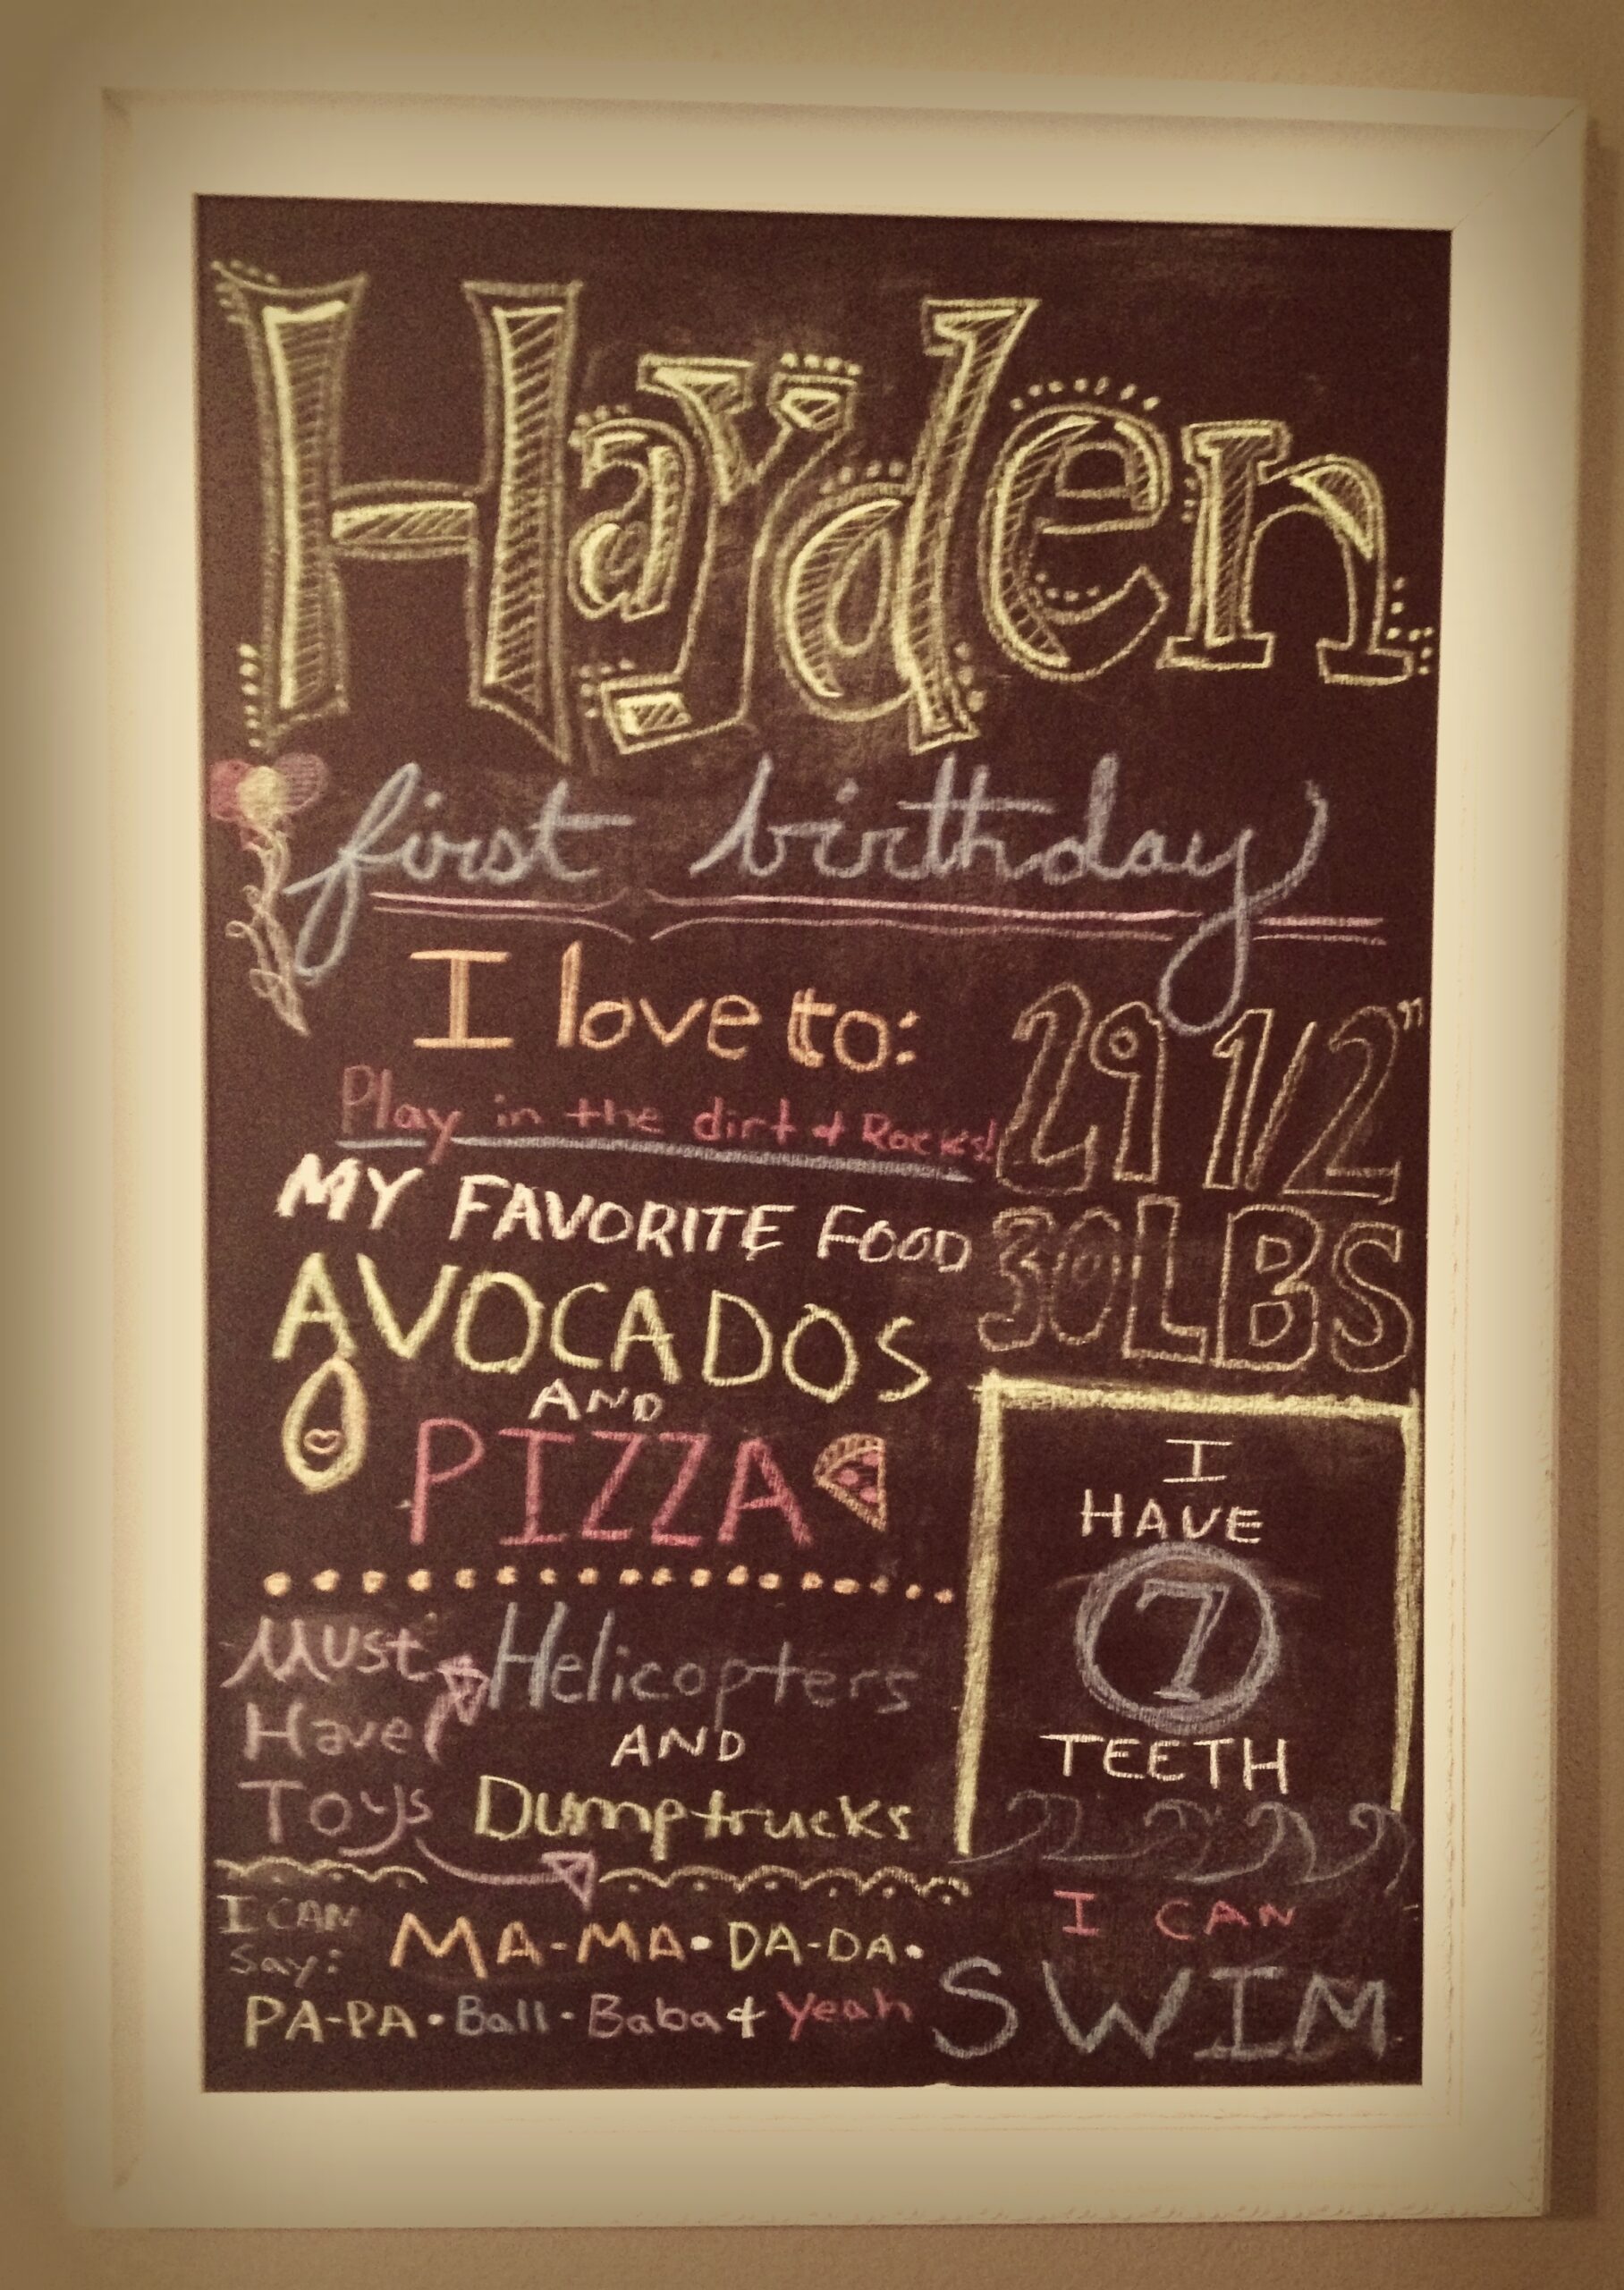 Hayden
first birthday
I love to:
Play in the dirt & Rocks!
29 1/2"
30LBS
MY FAVORITE FOOD
AVOCADOS
AND
PIZZA
I
HAVE
7
TEETH
Must
Have
Toys
Helicopters
AND
Dumptrucks
I CAN
Say:
MA-MA • DA-DA •
PA-PA • Ball • Baba & Yeah
I CAN
SWIM